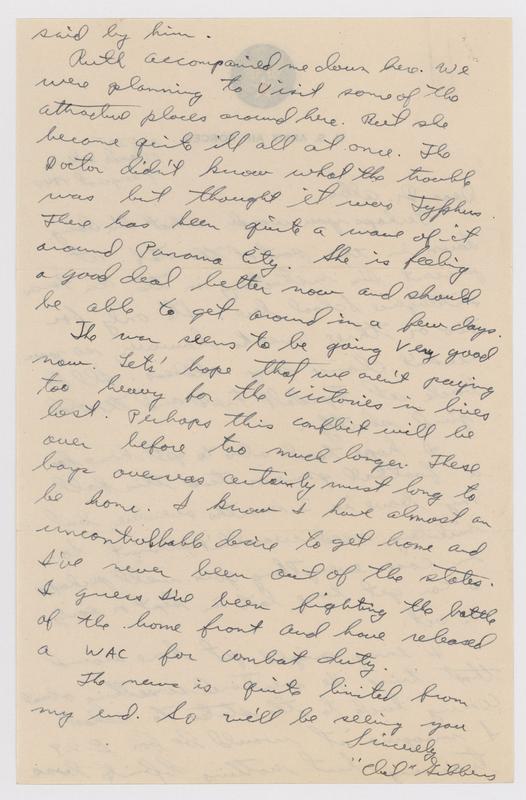 said by him.
Ruth accompanied me down here. We
were planning to visit some of the
attractive places around here. But she
became quite ill all at once. The
Doctor didn't know what the trouble
was but thought it was Typhus.
There has been quite a wave of it
around Panama City. She is feeling
a good deal better now and should
be able to get around in a few days.
The war seems to be going very good
now. Lets' hope that we aren't paying
too heavy for the victories in lives
lost. Perhaps this conflict will be
over before too much longer. These
boys overseas certainly must long to
be home. I know I have almost an
uncontrollable desire to get home and
I've never been out of the states.
I guess I've been fighting the battle
of the home front and have released
a WAC for combat duty.
The news is quite limited from
my end. So we'll be seeing you
Sincerely
Gibbens